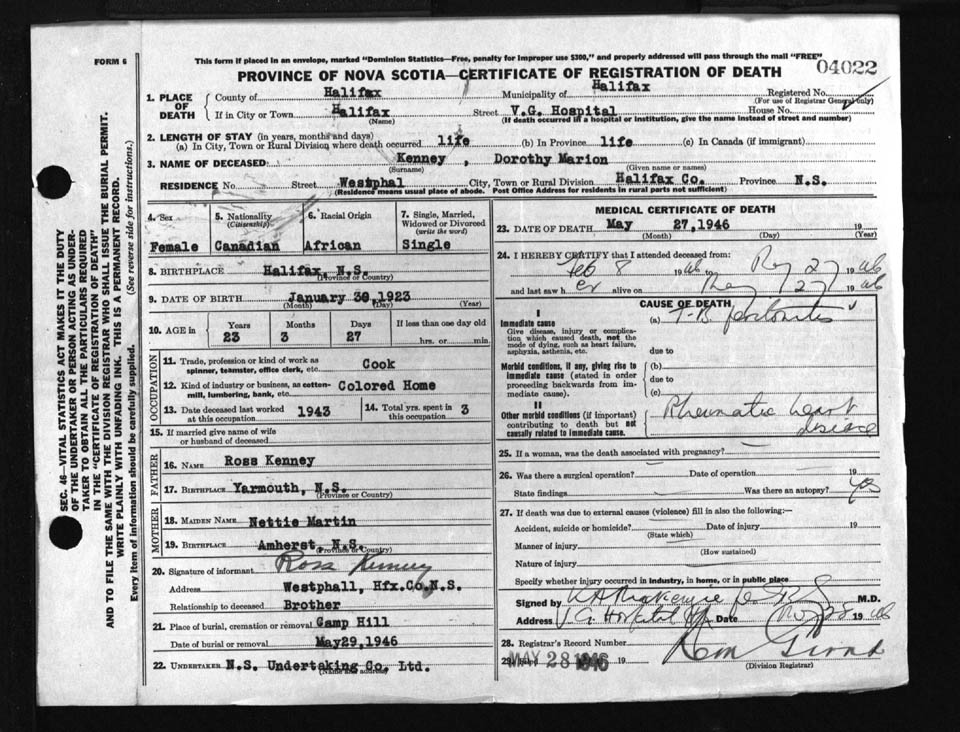 FORM 6
This form if placed in an envelope, marked "Dominion Statistics—Free, penalty for improper use $300," and properly addressed will pass through the mail "FREE"
04022
PROVINCE OF NOVA SCOTIA—CERTIFICATE OF REGISTRATION OF DEATH
1. PLACE OF DEATH
County of Halifax Municipality of Halifax Registered No.
(For use of Registrar General only)
If in City or Town Halifax Street V.G. Hospital House No.
(Name) (If death occurred in a hospital or institution, give the name instead of street and number)
2. LENGTH OF STAY (in years, months and days)
(a) In City, Town or Rural Division where death occurred life (b) In Province life (c) In Canada (if immigrant)
3. NAME OF DECEASED: Kenney , Dorothy Marion
(Surname) (Given name or names)
RESIDENCE No Street Westphal City, Town or Rural Division Halifax Co. Province N.S.
(Residence means usual place of abode. Post Office Address for residents in rural parts not sufficient)
4. Sex
Female
5. Nationality
(Citizenship)
Canadian
6. Racial Origin
African
7. Single, Married, Widowed or Divorced
(write the word)
Single
8. BIRTHPLACE Halifax, N.S.
(Province or Country)
9. DATE OF BIRTH January 30, 1923
(Month) (Day) (Year)
10. AGE in
Years Months Days If less than one day old
23 3 27 hrs. or min.
OCCUPATION
11. Trade, profession or kind of work as
spinner, teamster, office clerk, etc. Cook
12. Kind of industry or business, as cotton-
mill, lumbering, bank, etc. Colored Home
13. Date deceased last worked
at this occupation 1943
14. Total yrs. spent in
this occupation 3
15. If married give name of wife
or husband of deceased
FATHER
16. NAME Ross Kenney
17. BIRTHPLACE Yarmouth, N.S.
(Province or Country)
MOTHER
18. MAIDEN NAME Nettie Martin
19. BIRTHPLACE Amherst, N.S.
(Province or Country)
20. Signature of informant Ross Kenney
Address Westphall, Hfx.Co.N.S.
Relationship to deceased Brother
21. Place of burial, cremation or removal Camp Hill
Date of burial or removal May29,1946
22. UNDERTAKER N.S. Undertaking Co. Ltd.
(Name and address)
MEDICAL CERTIFICATE OF DEATH
23. DATE OF DEATH May 27,1946 19
(Month) (Day) (Year)
24. I HEREBY CERTIFY that I attended deceased from:
Feb 8 1946 to May 27 1946
and last saw her alive on May 27 1946
CAUSE OF DEATH
I
Immediate cause
Give disease, injury or complica-
tion which caused death, not the
mode of dying, such as heart failure,
asphyxia, asthenia, etc.
(a) T.B. peritonitis
due to
Morbid conditions, if any, giving rise to
immediate cause (stated in order
proceeding backwards from im-
mediate cause).
(b)
due to
(c)
II
Other morbid conditions (if important)
contributing to death but not
causally related to immediate cause.
Rheumatic heart
disease
25. If a woman, was the death associated with pregnancy?
26. Was there a surgical operation? Date of operation 19
State findings Was there an autopsy? yes
27. If death was due to external causes (violence) fill in also the following:—
Accident, suicide or homicide? Date of injury 19
(State which)
Manner of injury
(How sustained)
Nature of injury
Specify whether injury occurred in industry, in home, or in public place
Signed by M.D.
Address V.G. Hospital Hfx Date May 28 1946
28. Registrar's Record Number
29. MAY 28 1946 19
(Division Registrar)
SEC. 46—VITAL STATISTICS ACT MAKES IT THE DUTY
OF THE UNDERTAKER OR PERSON ACTING AS UNDER-
TAKER TO OBTAIN ALL THE PARTICULARS REQUIRED
IN THE "CERTIFICATE OF REGISTRATION OF DEATH"
AND TO FILE THE SAME WITH THE DIVISION REGISTRAR WHO SHALL ISSUE THE BURIAL PERMIT.
WRITE PLAINLY WITH UNFADING INK. THIS IS A PERMANENT RECORD.
Every item of information should be carefully supplied. (See reverse side for instructions.)